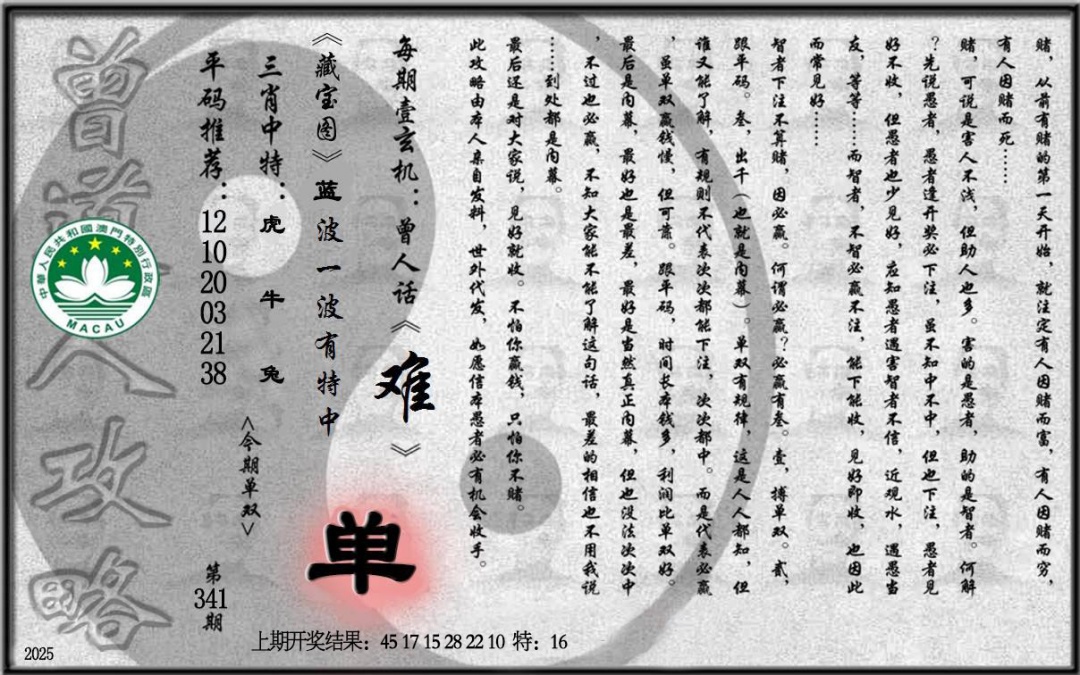 赌，从前有赌的第一天开始，就注定有人因赌而富，有人因赌而穷，
有人因赌而死……
赌，可说是害人不浅，但助人也多。害的是愚者，助的是智者。何解
？先说愚者，愚者逢开奖必下注，虽不知中不中，但也下注，愚者见
好不收，但愚者也少见好，应知愚者遇害智者不信，近观水，遇愚当
友，等等……而智者，不智必赢不注，能下能收，见好即收，也因此
而常见好……
智者下注不算赌，因必赢。何谓必赢？必赢有叁。壹，搏单双。贰，
跟单码。叁，出千（也就是内幕）。单双有规律，这是人人都知，但
谁又能了解，有规则不代表次次都能下注，次次都中。而是代表必赢
，虽单双赢钱慢，但可靠。跟单码，时间长本钱多，利润比单双好。
最后是内幕，最好也是最差，最好是当然真正内幕，但也没法次次中
，不过也必赢，不知大家能不能了解这句话，最差的相信也不用我说
……到处都是内幕。
最后还是对大家说，见好就收。不怕你赢钱，只怕你不赌。
此攻略由本人亲自发料，世外代发，如愿信本愚者必有机会收手。
每期壹玄机：曾人话《难》
《藏宝图》蓝波一波有特中
单
三肖中特：虎牛兔
<今期单双>
平码推荐：12 10 20 03 21 38
第341期
曾道人攻略
中華人民共和國澳門特別行政區
MACAU
上期开奖结果：45 17 15 28 22 10 特：16
2025